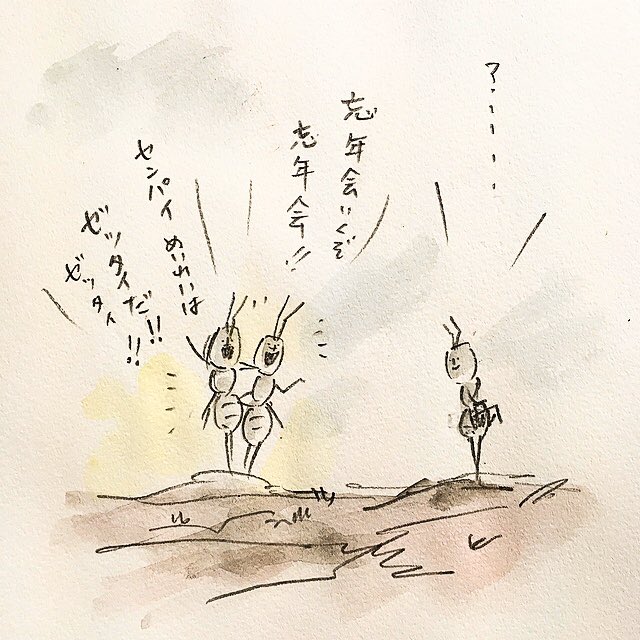 ア、、、、、
忘年会いくぞ
忘年会!!
センパイ めいれいは
ゼッタイだ!!
ゼッタイ!!